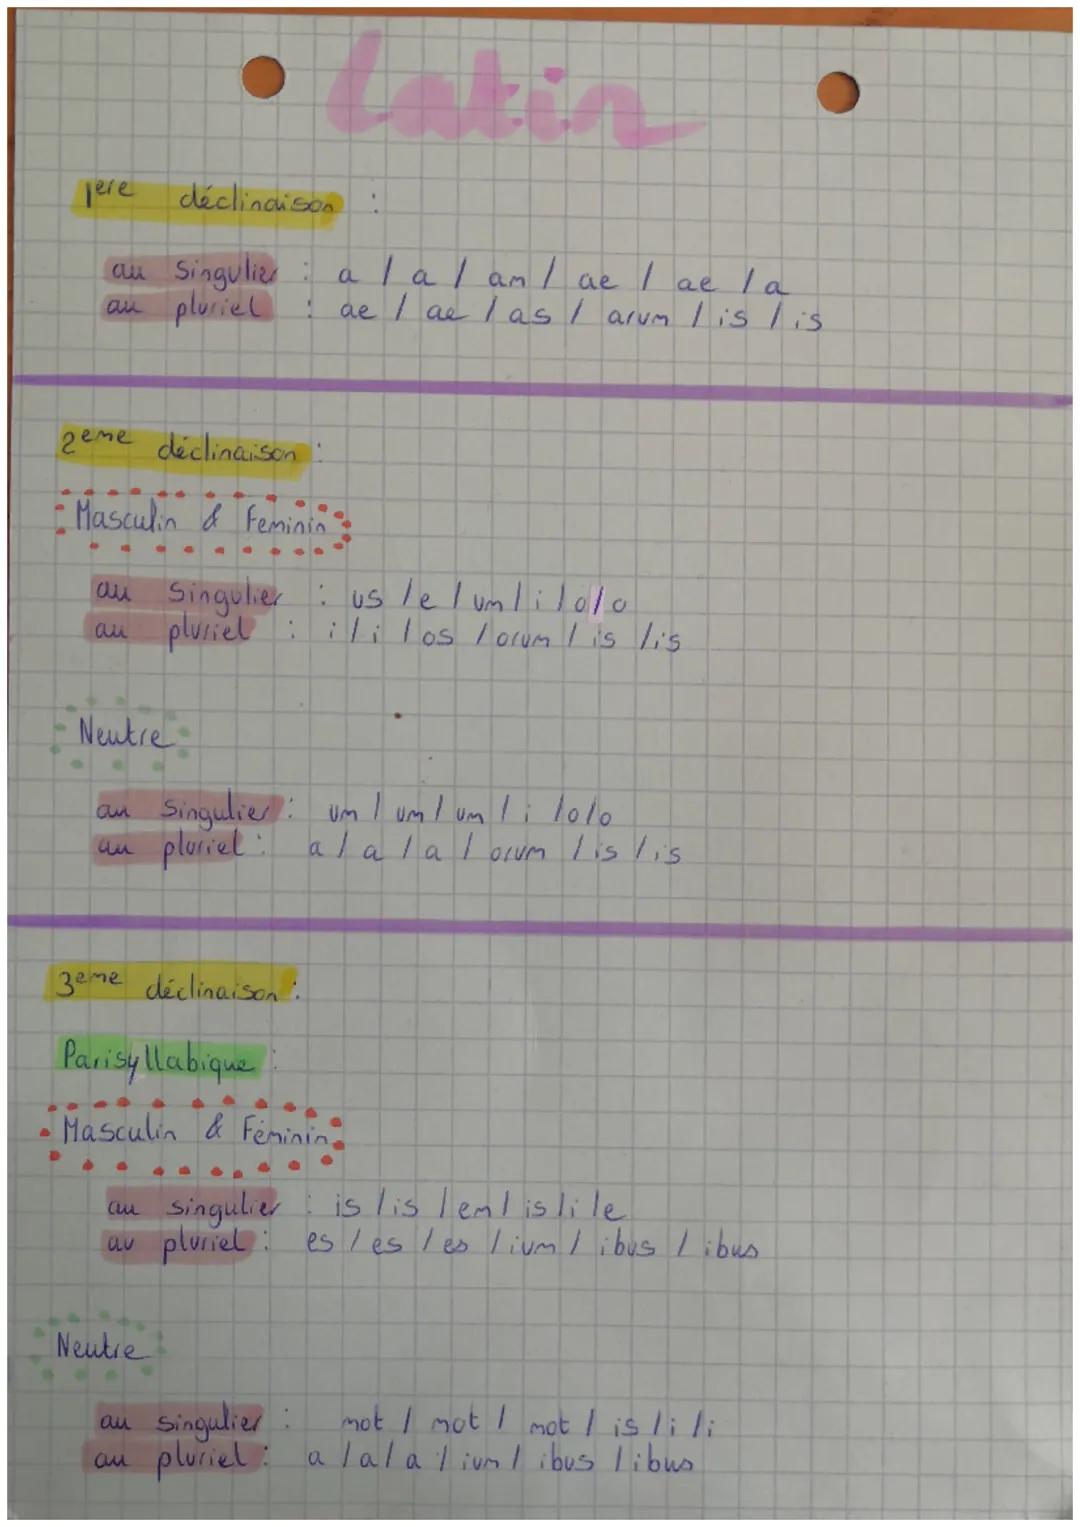 Latin
1ere déclinaison :
au singulier : a / a / am / ae / ae / a
au pluriel : ae / ae / as / arum / is / is
2eme déclinaison :
Masculin & Feminin
au singulier : us / e / um / i / o / o
au pluriel : i / i / os / orum / is / is
Neutre
au singulier : um / um / um / i / o / o
au pluriel : a / a / a / orum / is / is
3eme déclinaison :
Parisyllabique :
Masculin & Féminin
au singulier : is / is / em / is / i / e
au pluriel : es / es / es / ium / ibus / ibus
Neutre
au singulier : mot / mot / mot / is / i / i
au pluriel : a / a / a / ium / ibus / ibus